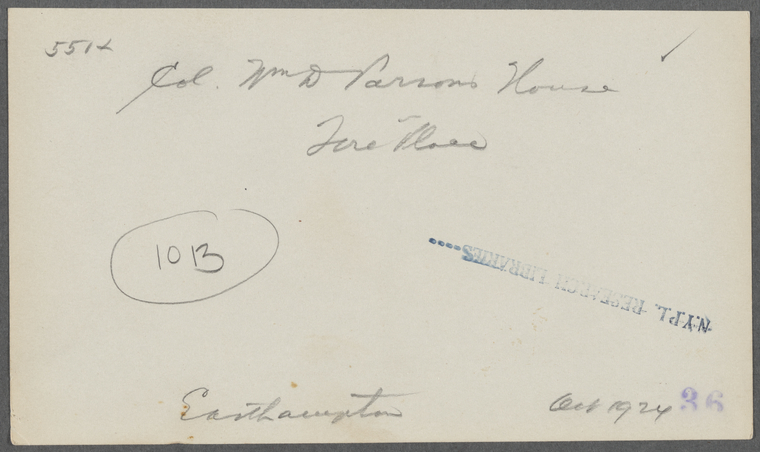 551+
Col. Wm D Parsons House
Fire Place
10 B
N.Y.P.L. RESEARCH LIBRARIES
Easthampton
Oct 1924 36